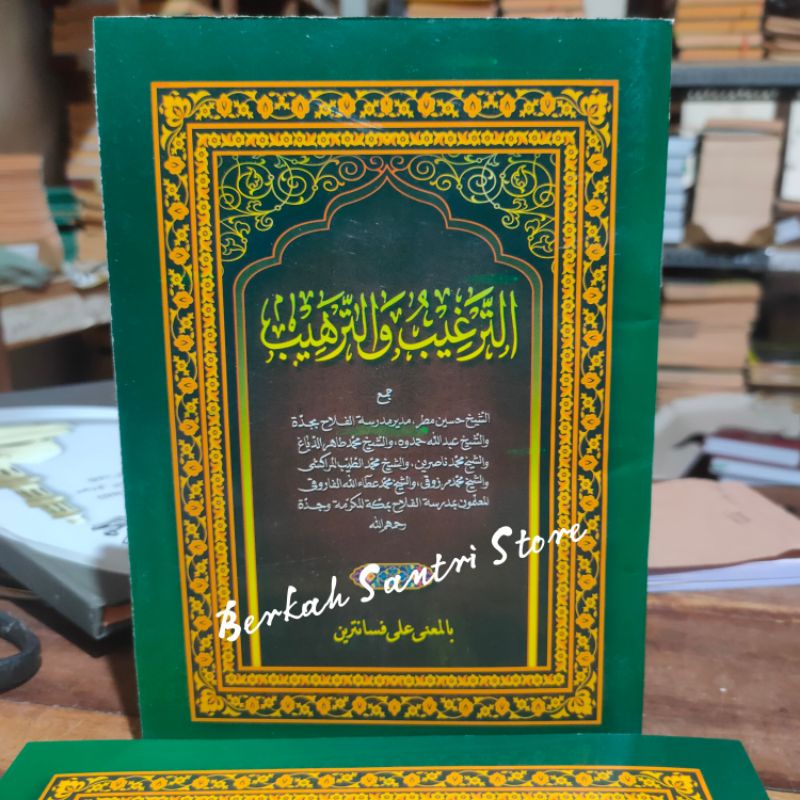 التَّرْغِيبُ وَالتَّرْهِيبُ
جمع
الشيخ حسين مطر، مدير مدرسة الفلاح بجدّة
والشيخ عبد الله حمدوه، والشيخ محمد طاهر الدباغ
والشيخ محمد ناصرين، والشيخ محمد الطيب المراكشي
والشيخ محمد مرزوقي، والشيخ محمد عطاء الله الفاروقي
المعلمون بمدرسة الفلاح بمكة المكرمة وجدة
رحمهم الله
Berkah Santri Store
بالمعنى على فسانترين